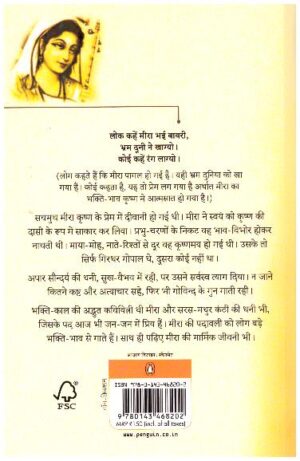 लोक कहें मीरा भई बावरी,
भ्रम दुनी ने खाग्यो।
कोई कहें रंग लाग्यो।
(लोग कहते हैं कि मीरा पागल हो गई है। यही भ्रम दुनिया को खा
गया है। कोई कहता है, यह तो प्रेम लग गया है अर्थात मीरा का
भक्ति-भाव कृष्ण में आत्मसात हो गया है।)
सचमुच मीरा कृष्ण के प्रेम में दीवानी हो गई थी। मीरा ने स्वयं को कृष्ण की
दासी के रूप में साकार कर लिया। प्रभु-चरणों के निकट वह भाव-विभोर होकर
नाचती थी। माया-मोह, नाते-रिश्तों से दूर वह कृष्णमय हो गई थी। उसके तो
सिर्फ गिरधर गोपाल थे, दूसरा कोई नहीं था।
अपार सौन्दर्य की धनी, सुख-वैभव में रही, पर उसने सर्वस्व त्याग दिया। न जाने
कितने कष्ट और अत्याचार सहे, फिर भी गोविन्द के गुन गाती रही।
भक्ति-काल की अद्भुत कवियित्री थी मीरा और सरस-मधुर कंठी की धनी भी,
जिसके पद आज भी जन-जन में प्रिय हैं। मीरा की पदावली को लोग बड़े
भक्ति-भाव से गाते हैं। साथ ही पढ़िए मीरा की मार्मिक जीवनी भी।
FSC
ISBN 978-0-143-46820-2
9 780143 468202
MRP ₹150 (incl. of all taxes)
www.penguin.co.in